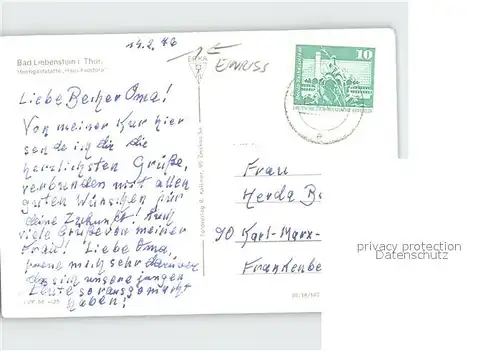 14.2.76
Bad Liebenstein i. Thür.
Heimgaststätte „Haus Feodora"
EINRISS
10
DEUTSCHE DEMOKRATISCHE REPUBLIK
Liebe Becher Oma!
Von meiner Kur hier
sende ich dir die
herzlichsten Grüße,
verbunden mit allen
guten Wünschen für
deine Zukunft! Auch
viele Grüße von meiner
Frau! Liebe Oma,
freue mich sehr darüber
das sich unsere jungen
Leute so rausgemacht
haben!
Frau
Herda B
90 Karl-Marx-
Frankenbe
privacy protection
Datenschutz